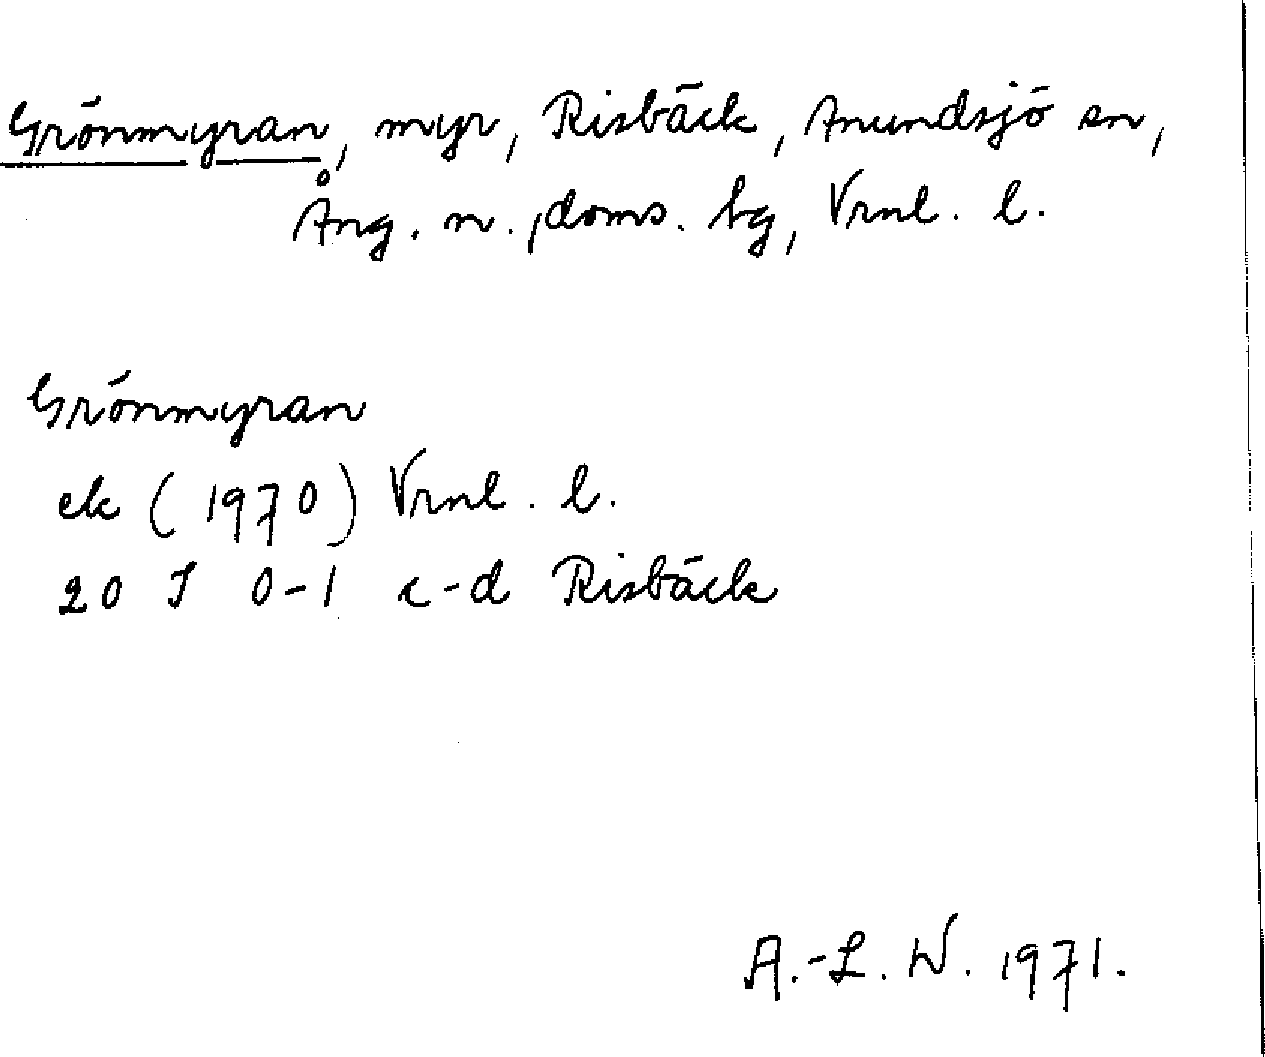 Grönmyran, myr, Risbäck, Anundsjö sn,
Ång. n., doms. bg, Vrnl. l.
Grönmyran
ek (1970) Vrnl. l.
20 J 0-1 c-d Risbäck
A.-L. W. 1971.